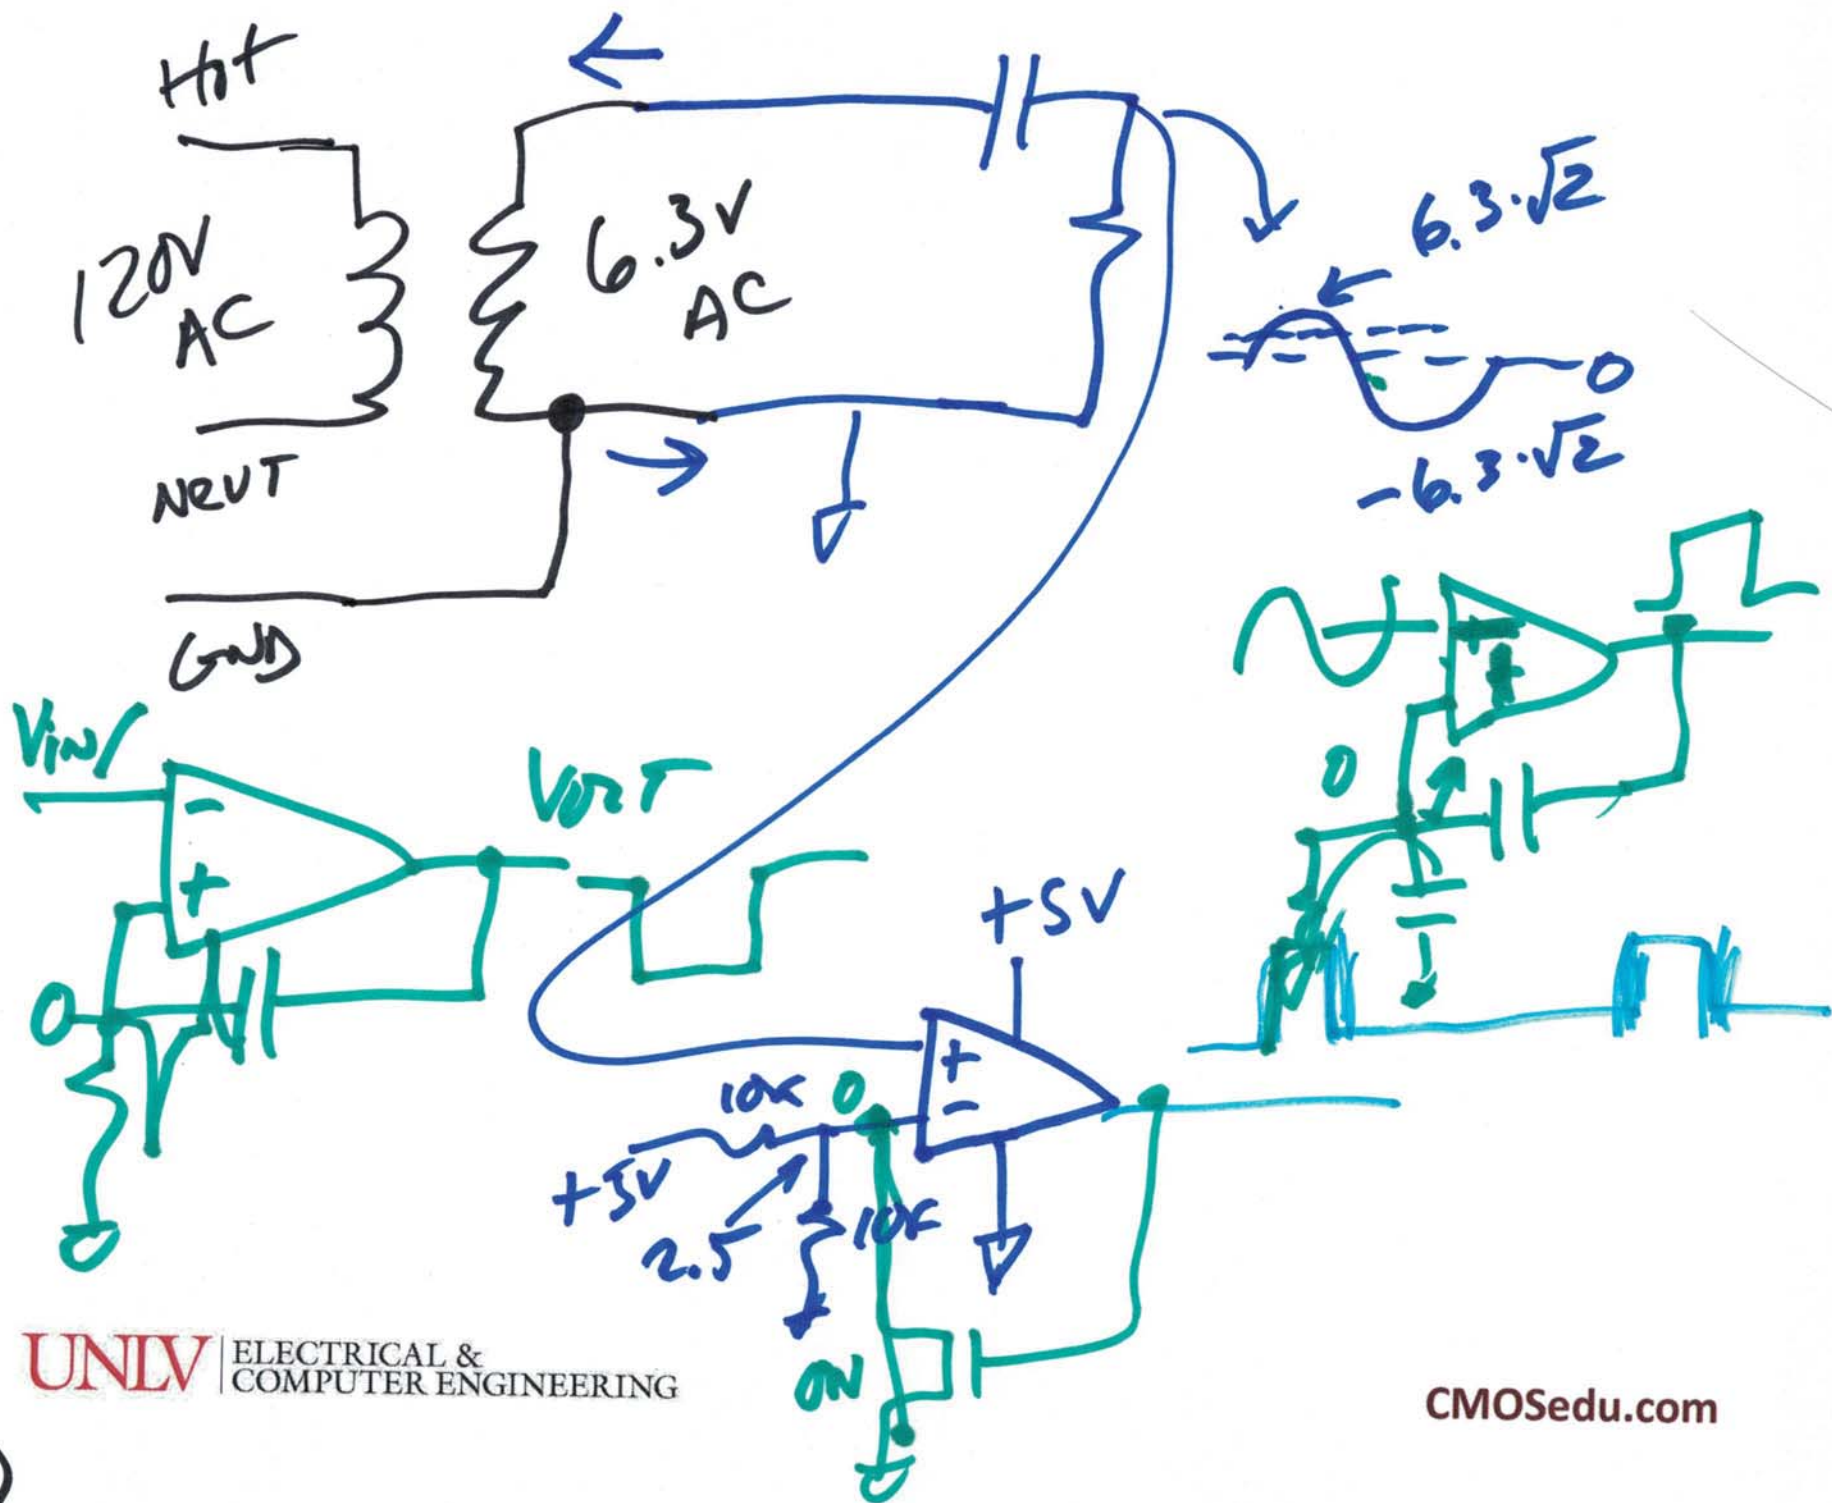 Hot
120V
AC
6.3V
AC
NeUT
GND
6.3·√2
0
-6.3·√2
VIN
-
+
VOUT
0
+
0
+5V
+
-
10K
0
+5V
2.5
10K
ON
UNLV
ELECTRICAL &
COMPUTER ENGINEERING
CMOSedu.com